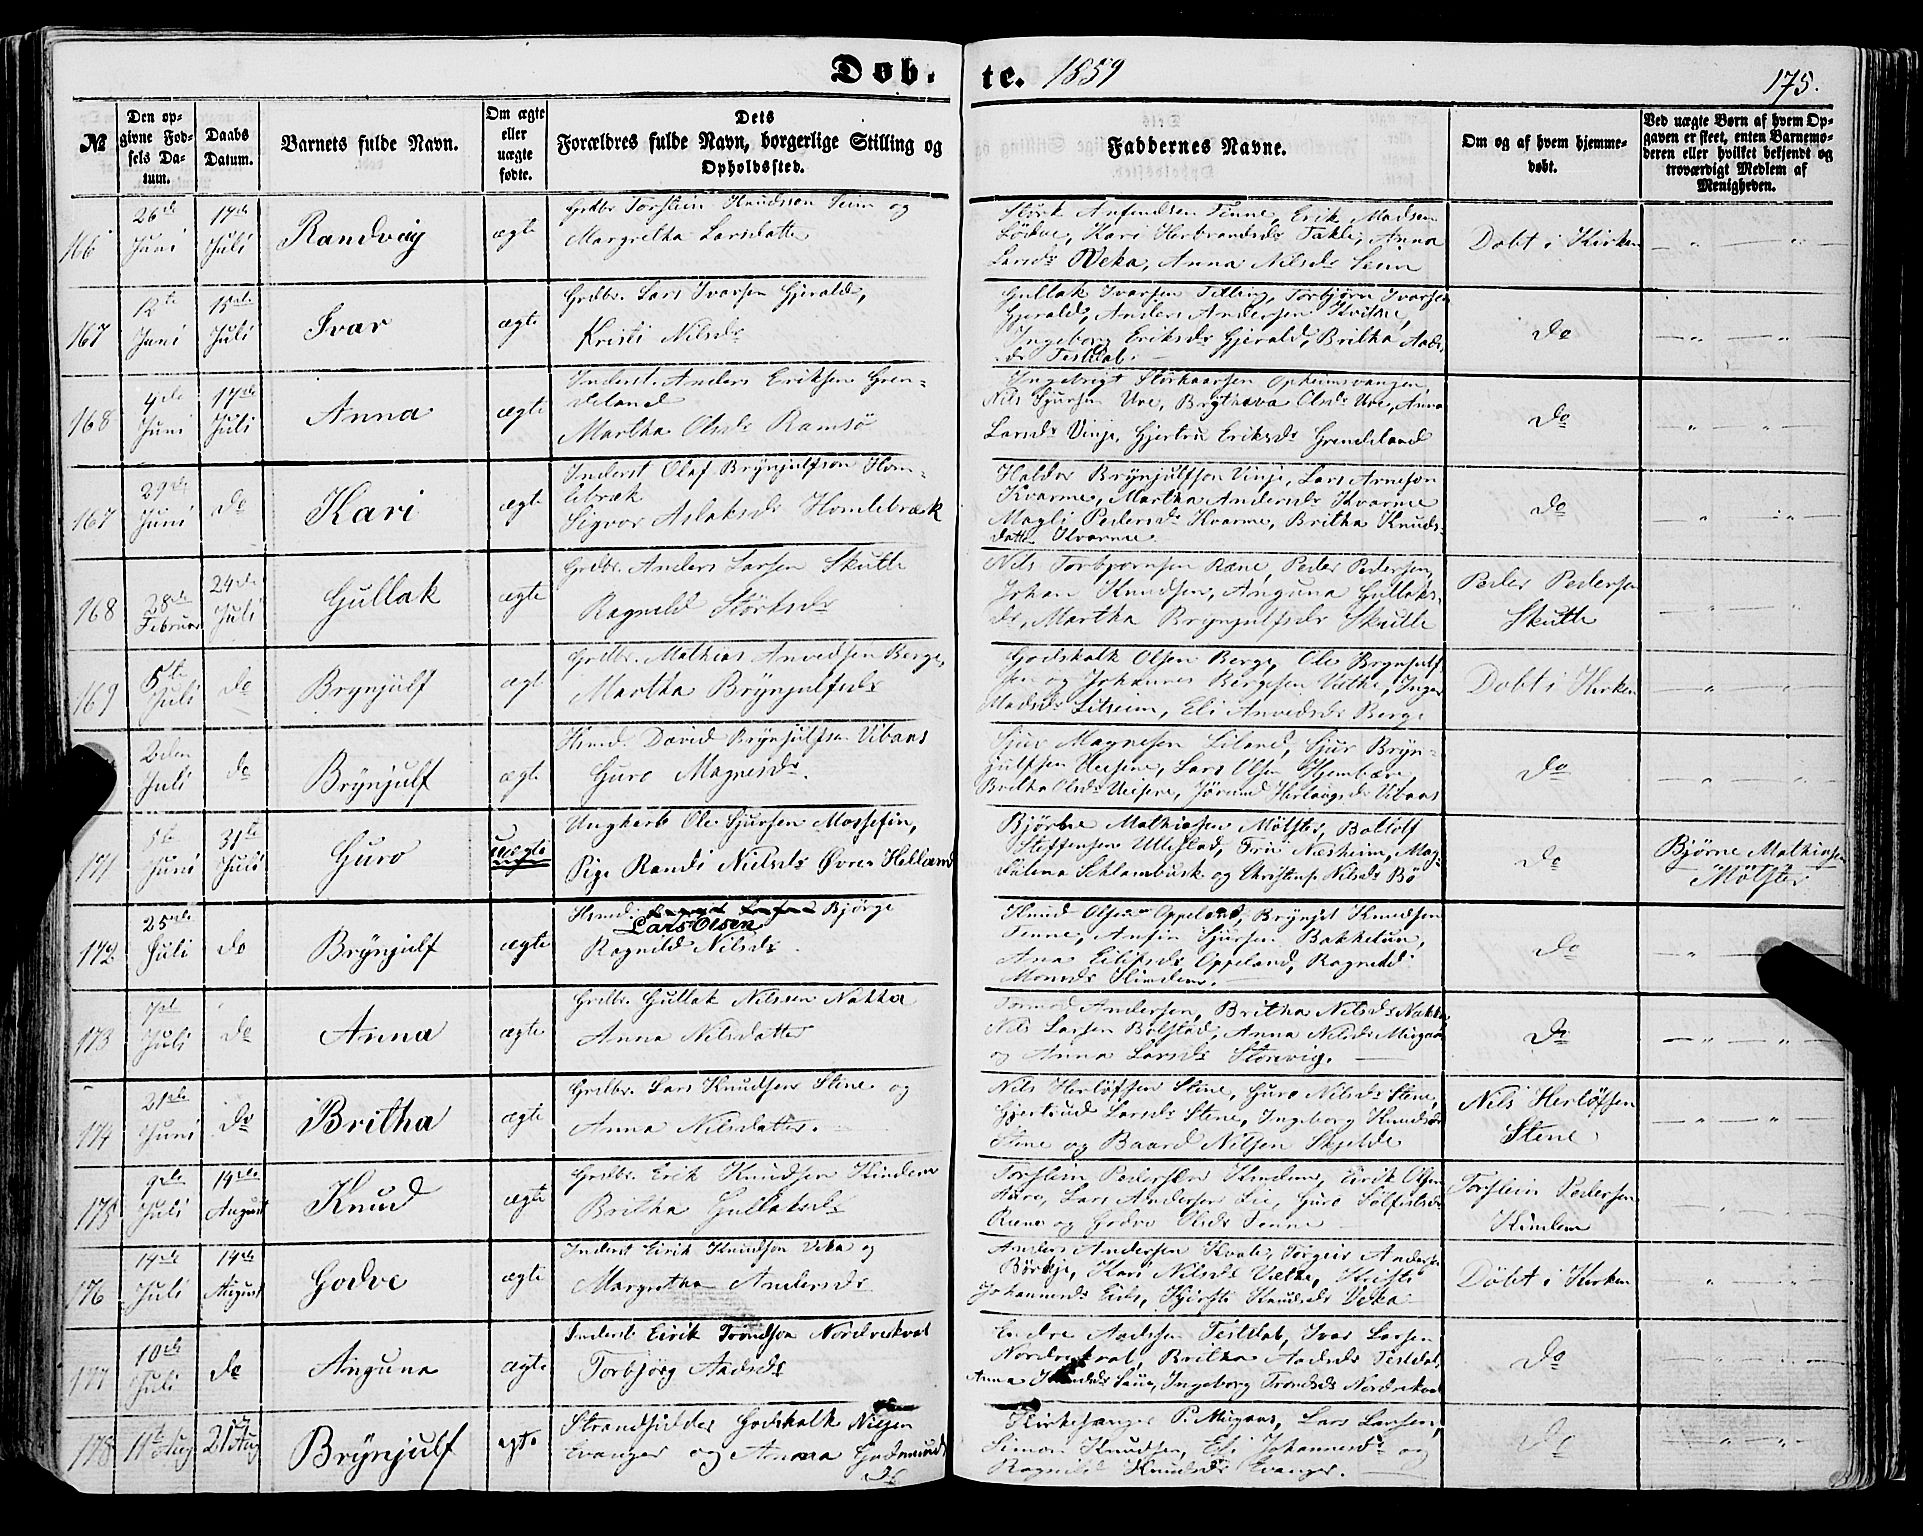 Døb.
te. 1859
175.
№
Den op-
givne Fød-
sels Da-
tum.
Daabs
Datum.
Barnets fulde Navn.
Om ægte
eller
uægte
fødte.
Dets
Forældres fulde Navn, borgerlige Stilling og
Opholdssted.
Faddernes Navne.
Om og af hvem hjemme-
døbt.
Ved uægte Børn af hvem Op-
gaven er skeet, enten Barnemo-
deren eller hvilket bekjendt og
troværdigt Medlem af
Menigheden.
166
26de
Juni
17de
Juli
Randveig
ægte
Grdbr. Torstein Knudsson Seim og
Margretha Larsdatter
Størk Anfindsen Finne, Erik Madsen
Lødve, Kari Herbrandsdr Takle, Anna
Larsdr Veka, Anna Nilsdr Seim
Døbt i Kirken
167
12te
Juni
15de
Juli
Ivar
ægte
Grdbr. Lars Ivarsen Gjerald,
Kristi Nilsdr
Gullak Ivarsen Fitling, Torbjørn Ivarsen
Gjerald, Anders Andersen Kvitne,
Ingeborg Eriksdr Gjerald, Britha Aads-
dr Testdal.
do
168
4de
Juni
17de
Juli
Anna
ægte
Inderst. Anders Eriksen Gren-
deland
Martha Olsdr Ramsø
Ingebrigt Størkaarsen Opheimsvangen,
Nils Sjursen Uve, Brythava Olsdr Uve, Anna
Larsdr Vinje, Gjertru Eriksdr Grendeland
do
167
29de
Juni
do
Kari
ægte
Inderst Olaf Brynjulfson Hom-
lebræk
Sigvor Aslaksdr Homlebræk
Haldor Brynjulfson Vinje, Lars Arneson
Kvarme, Martha Andersdr Kvarme
Magli Pedersdr Kvarme, Britha Knuds-
datter Kvarme
do
168
28de
Februar
24de
Juli
Gullak
ægte
Grdbr. Anders Larsen Skutle
Ragnild Størksdr
Nils Torbjørnsen Rene, Peder Pedersen,
Johan Knudsen, Anguna Gullaks-
dr, Martha Brynjulfsdr Skutle
Peder Pedersen
Skutle
169
5te
Juli
do
Brynjulf
ægte
Grdbr. Mathias Anvedsen Berge,
Martha Brynjulfsdr
Godskalk Olsen Berge, Ole Brynjulf-
sen og Johannes Bergesen Vethe, Inger
Madsdr Litseim, Eli Anvedsdr Berge
Døbt i Kirken
2den
Juli
do
Brynjulf
ægte
Hsmd. David Brynjulfson Vibaas
Guro Magnesdr.
Sjur Magnesen Liland, Sjur Bryn-
julfsen Veisene, Lars Olsen Hjembære,
Britha Olsdr Veisene, Jørand Herlaugsdr Vibaas
do
171
5te
Juni
31te
Juli
Guro
uægte
Ungkarl Ole Sjursen Mossefin,
Pige Randi Nielsdr Øvre Helland
Bjørne Mathiasen Mølster, Botolf
Steffensen Ullestad, Fru Næsheim, Mag-
dalena Schlambusk og Christense Nilsdr Bø
do
Bjørne Mathiasen
Mølster
172
25de
Juli
do
Brynjulf
ægte
Hsmd. Bjørge
Lars Olsen
Ragnild Nilsdr
Knud Olsen Oppeland, Brynjel Knudson
Finne, Anfin Sjursen Bakketun,
Ana Eilifsdr Oppeland, Ragnild
Monsdr Himlem.
do
173
7de
Juli
do
Anna
ægte
Grdbr. Gullak Nilssen Nakka
Anna Nilsdatter
Tormod Andersen, Britha Nilsdr Nakka
Nils Larsen Bølstad, Anna Nilsdr Mugaas
og Anna Larsdr Storevig.
do
174
21de
Juni
do
Britha
ægte
Grdbr. Lars Knudsen Stene og
Anna Nilsdatter.
Nils Herløfsen Stene, Guro Nilsdr Stene,
Gjertrud Larsdr Stene, Ingeborg Knudsdr
Stene og Baard Nilsen Skjelde
Nils Herløfsen
Stene
175
9de
Juli
14de
August
Knud
ægte
Grdbr. Erik Knudsen Kindem
Britha Gullaksdr
Torstein Pedersen Kindem, Eirik Olsen
Aure, Lars Andersen Lie, Guro Sølfestsdr
Rene og Godve Olsdr Finne
Torstein Pedersen
Kindem
176
14de
Juli
14de
August
Godve
ægte
Inderst Eirik Knudson Veka og
Margretha Andersdr
Anders Andersen Kvale, Torgeir Anderson
Børkje, Kari Nilsdr Vethe, Kristi
Johannesdr Eide, Kjersti Knudsdr Veka
Døbt i Kirken
177
10de
Juli
do
Anguna
ægte
Inderst Eirik Trondson Nordrekval
Torbjørg Aadsdr
Endre Aadssen Testdal, Ivar Larsen
Nordrekval, Britha Aadsdr Testdal,
Anna Saue, Ingeborg Trondsdr Nordrekval
do
178
11te Aug
21 Aug
Brynjulf
ægte
Strandsidder Godskalk Nilsen
Evanger og Anna Gudmunds
dr
Kirkesanger P. Mugaas, Lars Larsen,
Simon Knudsen, Eli Johannesdr og
Ragnild Knudsdr Evanger.
do